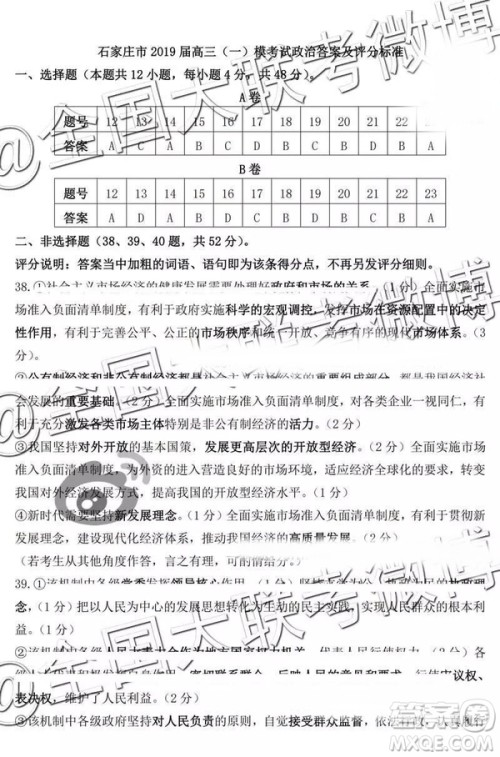 石家庄市 2019 届高三（一）模考试政治答案及评分标准
一、选择题（本题共 12 小题，每小题 4 分，共 48 分）。
A 卷
题号 12 13 14 15 16 17 18 19 20 21 22
答案 A D A C B D B C C D B A
B 卷
题号 12 13 14 15 16 17 18 19 20 21 22 23
答案 A D A C B D B C C D B A
二、非选择题（38、39、40 题，共 52 分）。
评分说明：答案当中加粗的词语、语句即为该条得分点，不再另发评分细则。
38.①社会主义市场经济的健康发展需要处理好政府和市场的关系。 全面实施市
场准入负面清单制度，有利于政府实施科学的宏观调控，发挥市场在资源配置中的决定
性作用，有利于完善公平、公正的市场秩序和统一开放、竞争有序的现代市场体系。（3
分）。
②公有制经济和非公有制经济都是社会主义市场经济的重要组成部分，都是我国经济社
会发展的重要基础。（2 分）全面实施市场准入负面清单制度，对各类企业一视同仁，有
利于充分激发各类市场主体特别是非公有制经济的活力。（2 分）
③我国坚持对外开放的基本国策，发展更高层次的开放型经济。（2 分）全面实施市场
准入负面清单制度，为外资的进入营造良好的市场环境，适应经济全球化的要求，转变
我国对外经济的发展方式，提高我国的开放型经济水平。（2 分）
④新时代需要坚持新发展理念。（1 分）全面实施市场准入负面清单制度，推动
建设现代化经济体系，推动经济的高质量发展。（2 分）
（若考生从其他角度作答，言之有理，可酌情给分。）
39.①该机制中各级党委发挥领导核心作用，
念，（1 分）把以人民为中心的发展思想转化为生动的实践，实现好人民群众的根本利
益。（1 分）
②该机制中各级人民代表大会作为各地方国家权力机关，代表人民行使权力，（2 分）各
级人大代表 密切联系群众，反映人民的意见和要求，行使审议权、
表决权，维护了人民利益。（2 分）
③该机制中各级政府坚持对人民负责的原则，自觉接受群众监督，依法
@全国大联考微博
@全国大联考微博
@全国大联考微博